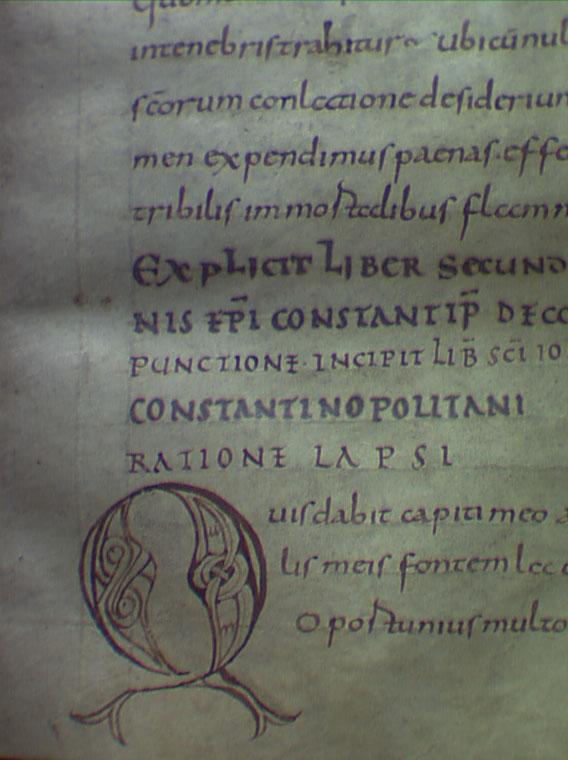 intenebris trahitur ubicūnul
scōrum conlectione desiderium
men expendimus paenas. effe
tribilis immortalibus flamm
EXPLICIT LIBER SECUND
NIS EP̄I CONSTANTIP̄ DECO
PUNCTIONE. INCIPIT LIB̄ SC̄I IO
CONSTANTINOPOLITANI
RATIONE LAPSI
Quis dabit capiti meo a
lis meis fontem lac
Oportunius multo